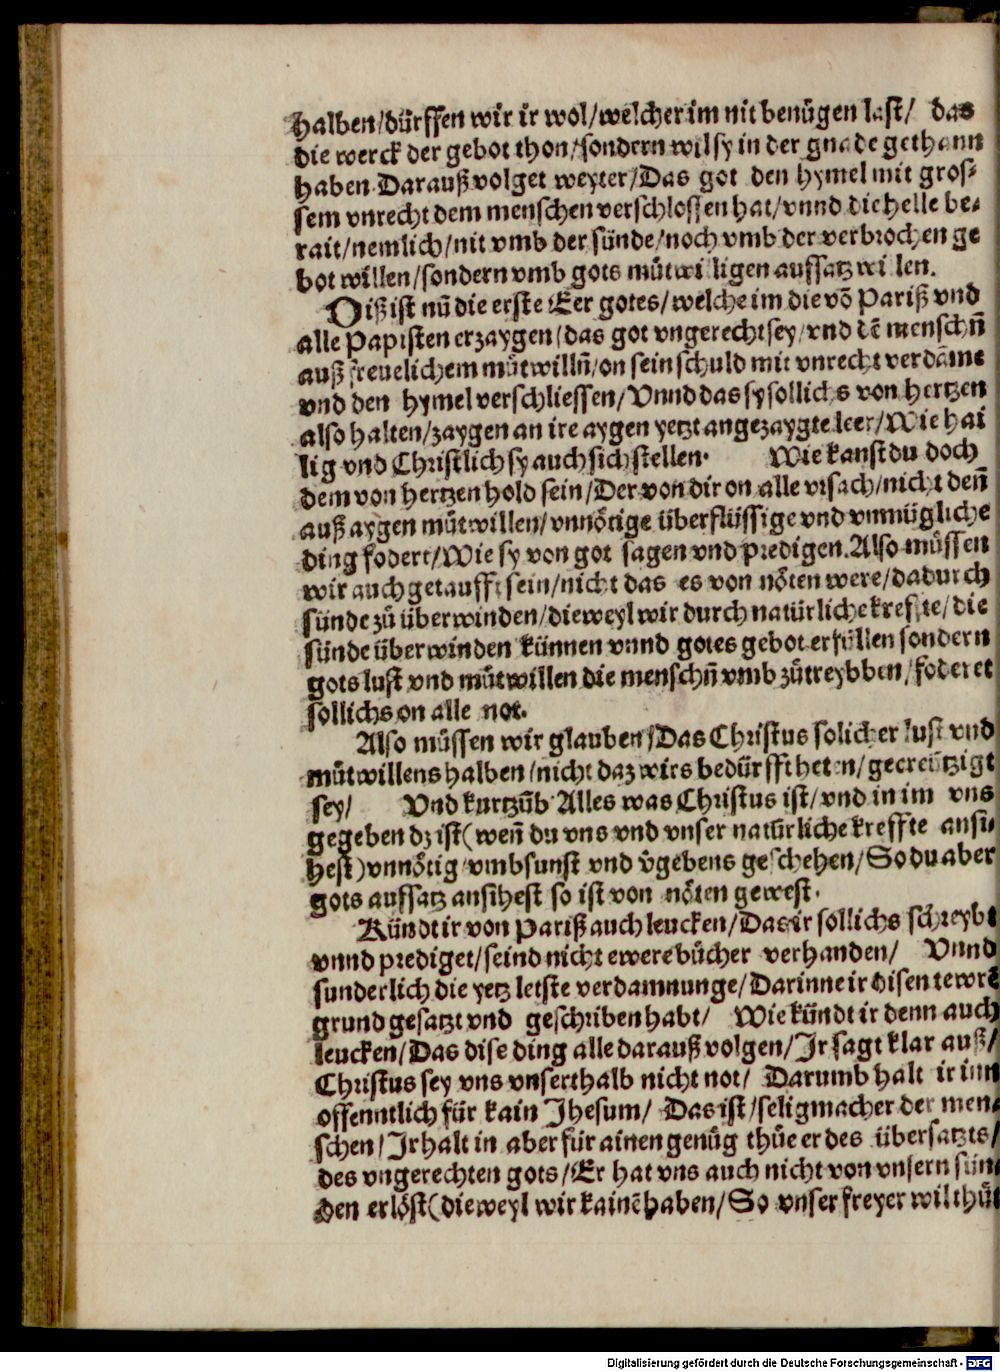 halben/dürffen wir ir wol/welcher im nit benügen last/ das
die werck der gebot thon/sondern wil sy in der gnade gethann
haben. Darauß volget weyter/Das got den hymel mit gros-
sem vnrecht dem menschen verschlossen hat/vnnd die helle be-
rait/nemlich/nit vmb der sünde/noch vmb der verbrochen ge
bot willen/sondern vmb gots můtwilligen auffsatz willen.
Diß ist nū die erste Eer gotes/welche im die võ Pariß vnd
alle Papisten erzaygen/das got vngerecht sey/vnd dē menschñ
auß freuelichem můtwillñ/on sein schuld mit vnrecht verdāme
vnd den hymel verschliessen/Vnnd das sy sollichs von hertzen
also halten/zaygen an ire aygen yetzt angezaygte leer/Wie hai
lig vnd Christlich sy auch sich stellen. Wie kanst du doch
dem von hertzen hold sein/Der von dir on alle vrsach/nicht deñ
auß aygen můtwillen/vnnötige überflüssige vnd vnmügliche
ding fodert/Wie sy von got sagen vnd predigen. Also müssen
wir auch getaufft sein/nicht das es von nöten were/dadurch
sünde zů überwinden/dieweyl wir durch natürliche kreffte/die
sünde überwinden künnen vnnd gotes gebot erfüllen sondern
gots lust vnd můtwillen die menschñ vmb zůtreybben/foderet
sollichs on alle not.
Also müssen wir glauben/Das Christus solicher lust vnd
můtwillens halben/nicht daz wirs bedürfft heten/gecreützigt
sey/ Vnd kurtzūb Alles was Christus ist/vnd in im vns
gegeben dz ist(weñ du vns vnd vnser natürliche kreffte ansi-
hest)vnnötig vmbsunst vnd v̄gebens geschehen/So du aber
gots auffsatz ansihest so ist von nöten gewest.
Kündt ir von Pariß auch leucken/Das ir sollichs schreybt
vnnd prediget/seind nicht ewere bücher verhanden/ Vnnd
sunderlich die yetz letste verdamnunge/Darinne ir disen tewrē
grund gesatzt vnd geschriben habt/ Wie kündt ir denn auch
leucken/Das dise ding alle darauß volgen/Ir sagt klar auß/
Christus sey vns vnserthalb nicht not/ Darumb halt ir inn
offenntlich für kain Jhesum/ Das ist/seligmacher der men-
schen/Ir halt in aber für ainen genůg thüer des übersatzts/
des vngerechten gots/Er hat vns auch nicht von vnsern sün-
den erlöst(dieweyl wir kainē haben/So vnser freyer wil thůt
Digitalisierung gefördert durch die Deutsche Forschungsgemeinschaft - DFG